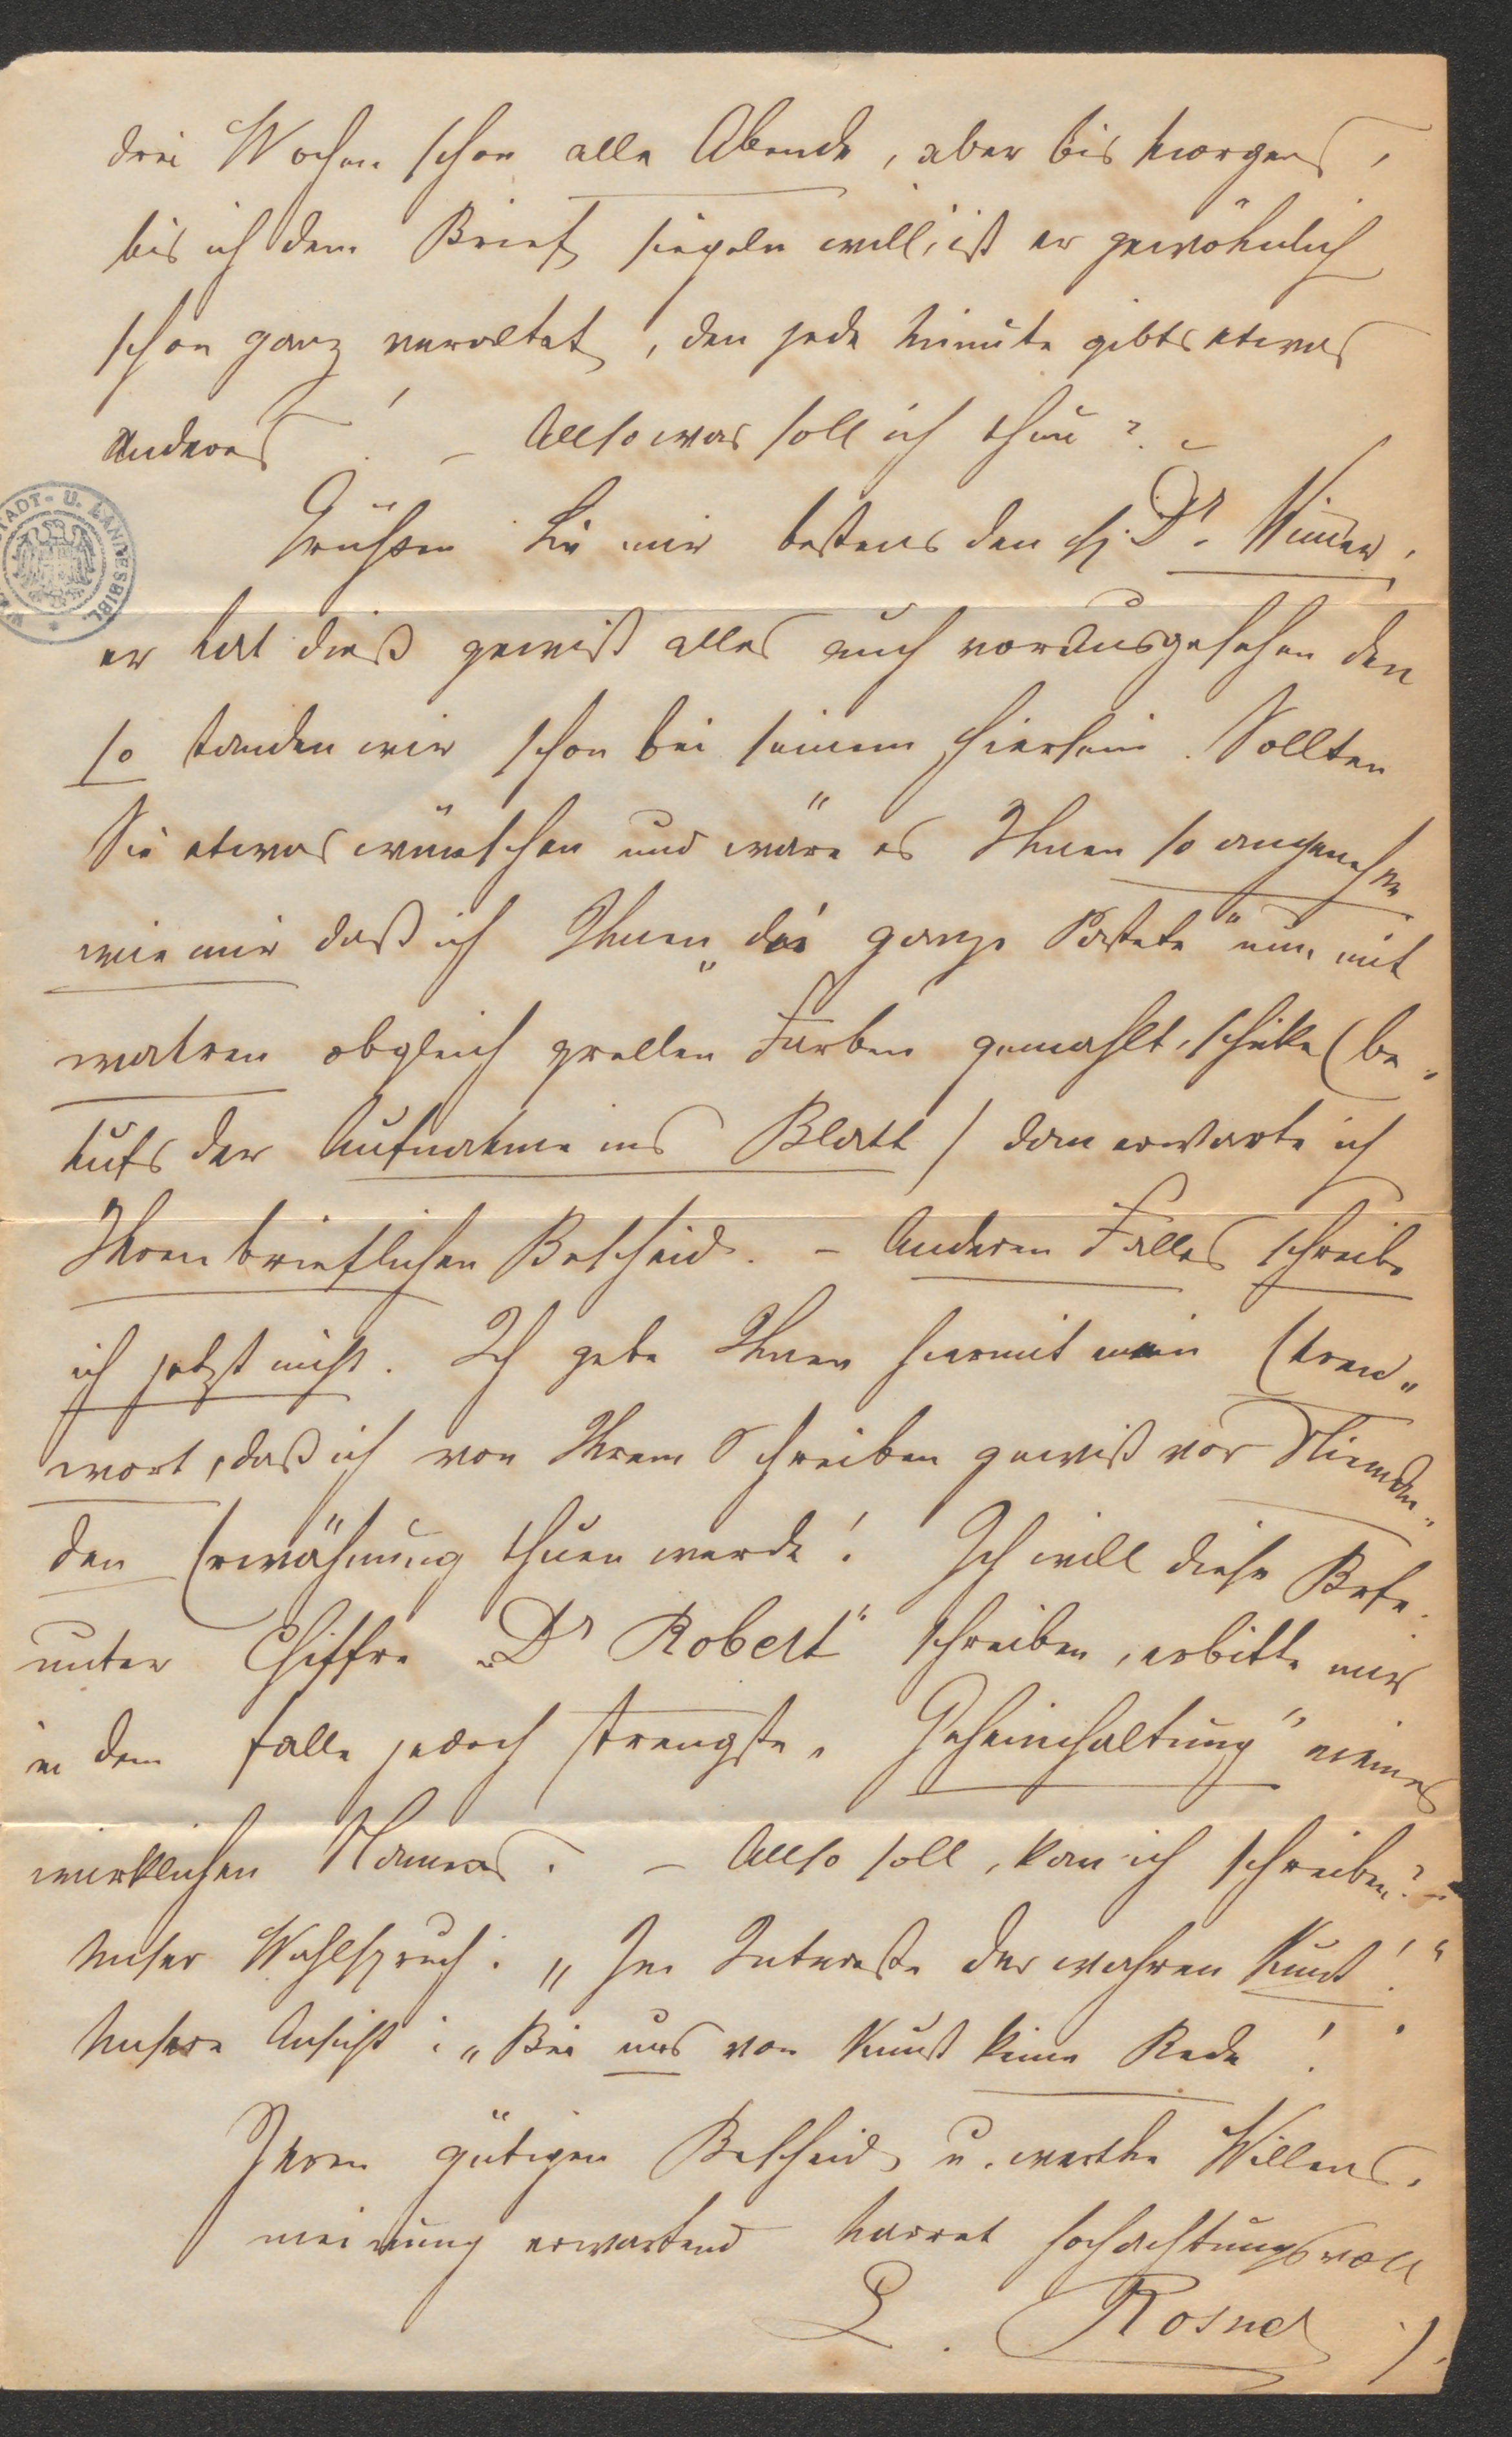 drei Wochen schon alle Abende, aber bis Morgens,
bis ich den Brief siegeln will, ist er gewöhnlich
schon ganz veraltet, den jede Minute gibts etwas
Anderes! – Allso was soll ich thun? –
Grüßen Sie mir bestens den H. Dr.
er hat dieß gewiß alles auch vorausgesehen den
so standen wir schon bei seinem Hiersein. Sollten
Sie etwas wünschen und wäre es Ihnen so angenehm
wie mir daß ich Ihnen „die ganze Pastete" nun mit
wahren obgleich grellen Farben gemahlt, schike (be-
hufs der Aufnahme ins Blatt) dan erwarte ich
Ihren brieflichen Bescheid. – Anderen Falles schreibe
ich jetzt nicht. Ich gebe Ihnen hiermit mein Ehren-
wort, daß ich von Ihrem Schreiben gewiß vor Nieman-
den Erwähnung thuen werde! Ich will diese
unter Chiffre „Dr Robert" schreiben, erbitte mir
in dem Falle jedoch strengste „Geheimhaltung" meines
wirklichen Namens. – Allso soll, kan ich schreiben? –
Unser Wahlspruch: „Im Interesse der wahren Kunst!"
Unsere Ansicht: „Bei uns von Kunst keine Rede!
Ihren gütigen Bescheid u. werthe Willens-
meinung erwartend harret hochachtungsvoll
L. Rosner
STADT- U. LANDESBIBL.